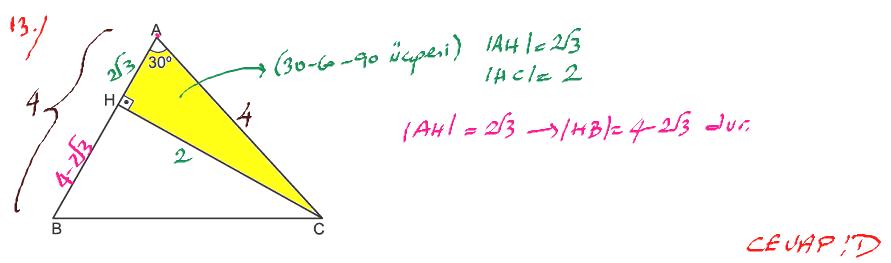 13.)
A
30°
2√3
4
H
4
4-2√3
2
B
C
(30-60-90 üçgeni) |AH| = 2√3
|HC| = 2
|AH| = 2√3 → |HB| = 4-2√3 dur.
CEVAP: D